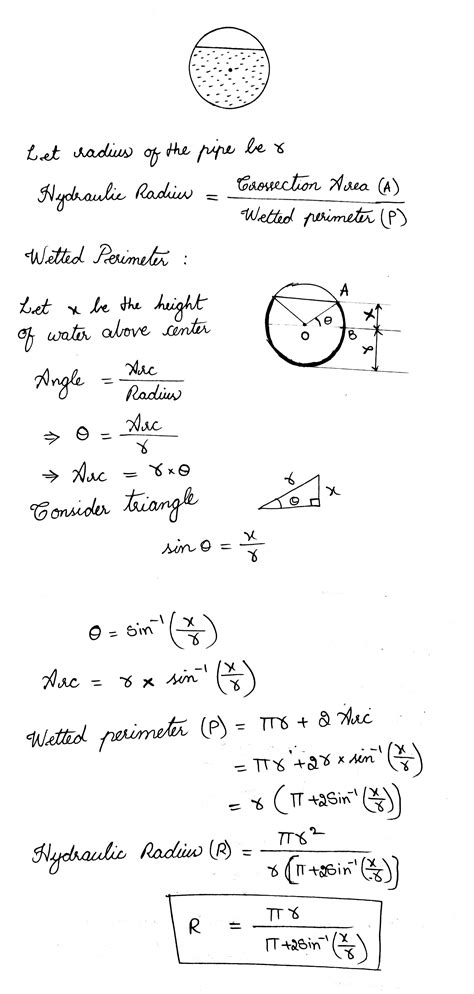 Let radius of the pipe be r
Hydraulic Radius = Crossection Area (A) / Wetted perimeter (P)
Wetted Perimeter :
Let x be the height
of water above center
A
θ
x
O
B
r
Angle = Arc / Radius
⇒ θ = Arc / r
⇒ Arc = r × θ
Consider triangle
r
x
θ
sin θ = x / r
θ = sin⁻¹ (x/r)
Arc = r × sin⁻¹ (x/r)
Wetted perimeter (P) = πr + 2 Arc
= πr + 2r × sin⁻¹ (x/r)
= r (π + 2 Sin⁻¹ (x/r))
Hydraulic Radius (R) = πr² / r [π + 2 Sin⁻¹ (x/r)]
R = πr / π + 2 Sin⁻¹ (x/r)